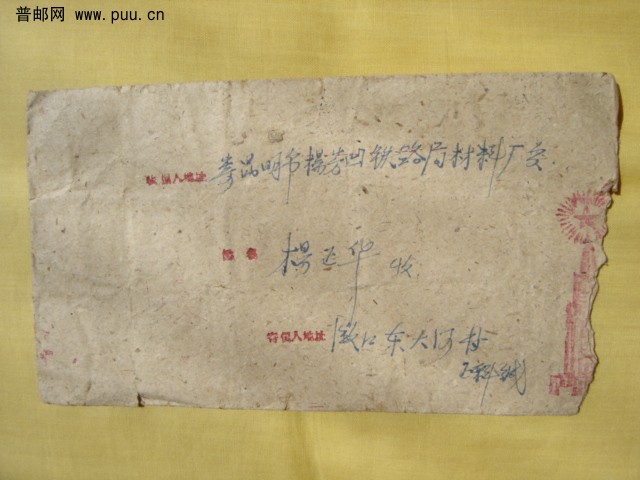 普邮网 www.puu.cn
收信人地址 寄昆明市杨方凹铁路局材料厂交
姓名 杨正华 收
寄信人地址 东大河村